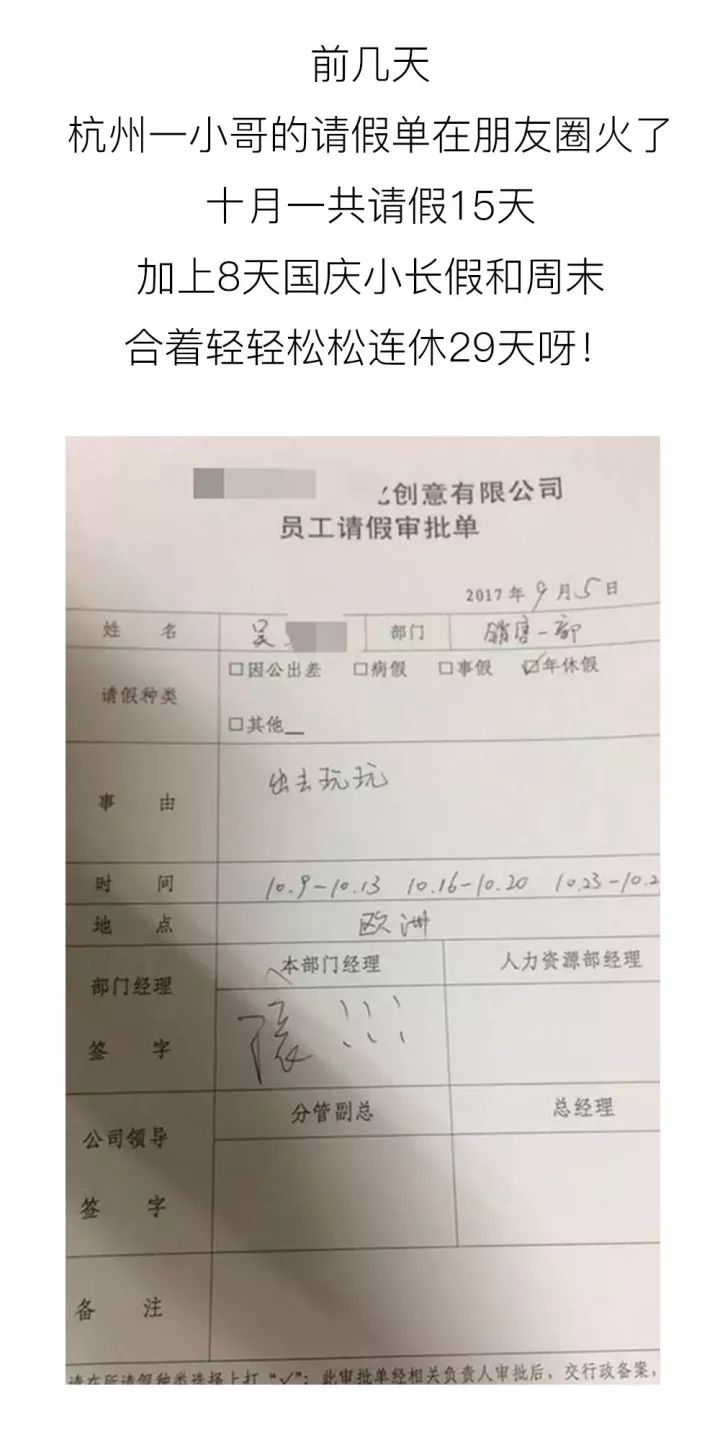 前几天
杭州一小哥的请假单在朋友圈火了
十月一共请假15天
加上8天国庆小长假和周末
合着轻轻松松连休29天呀！
创意有限公司
员工请假审批单
2017年9月5日
姓 名 吴 部门 销售一部
请假种类 □因公出差 □病假 □事假 ☑年休假
□其他__
事 由 出去玩玩
时 间 10.9-10.13 10.16-10.20 10.23-10.2
地 点 欧洲
部门经理 签 字 本部门经理 人力资源部经理
张!!!
公司领导 签 字 分管副总 总经理
备 注
请在所请假种类选择上打“✓”；此审批单经相关负责人审批后，交行政备案，